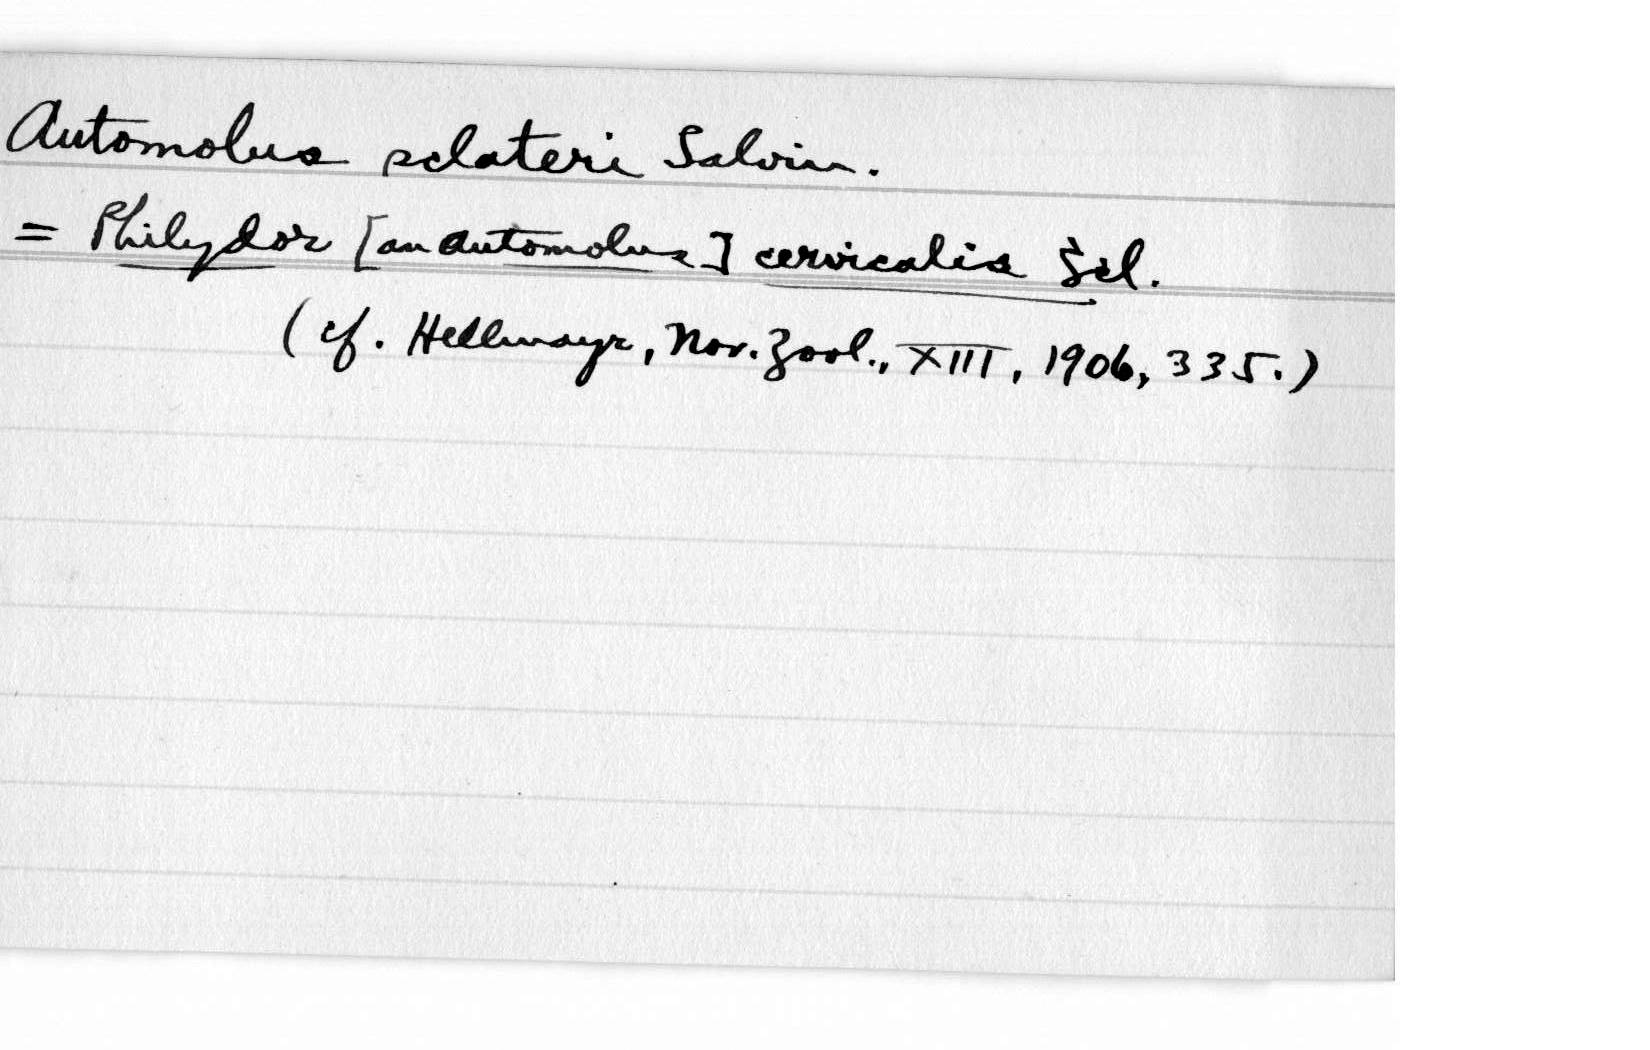 Automolus sclateri Salvin.
= Philydor [an Automolus] cervicalis Scl.
(cf. Hellmayr, Nov. Zool., XIII, 1906, 335.)